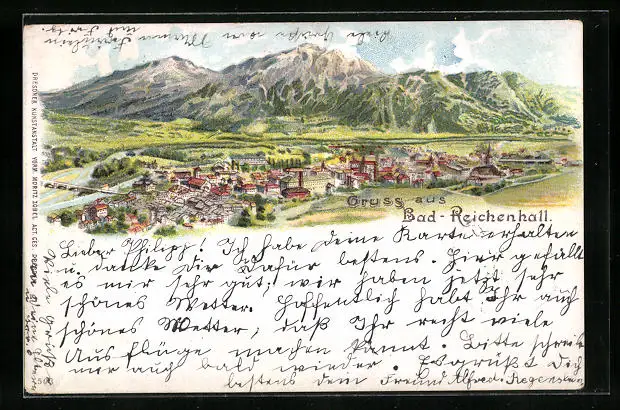 Viele Grüße von
DRESDNER KUNSTANSTALT VORM. MORITZ ACT.-GES.
Gruss aus
Bad-Reichenhall.
Lieber Philipp! Ich habe deine Karte erhalten
u. danke Dir dafür bestens. Hier gefällt
es mir sehr gut; wir haben jetzt sehr
schönes Wetter. Hoffentlich habt Ihr auch
schönes Wetter, daß Ihr recht viele
Ausflüge machen könnt. Bitte schreibe
mir auch bald wieder. Es grüßt Dich
bestens dein Freund Alfred